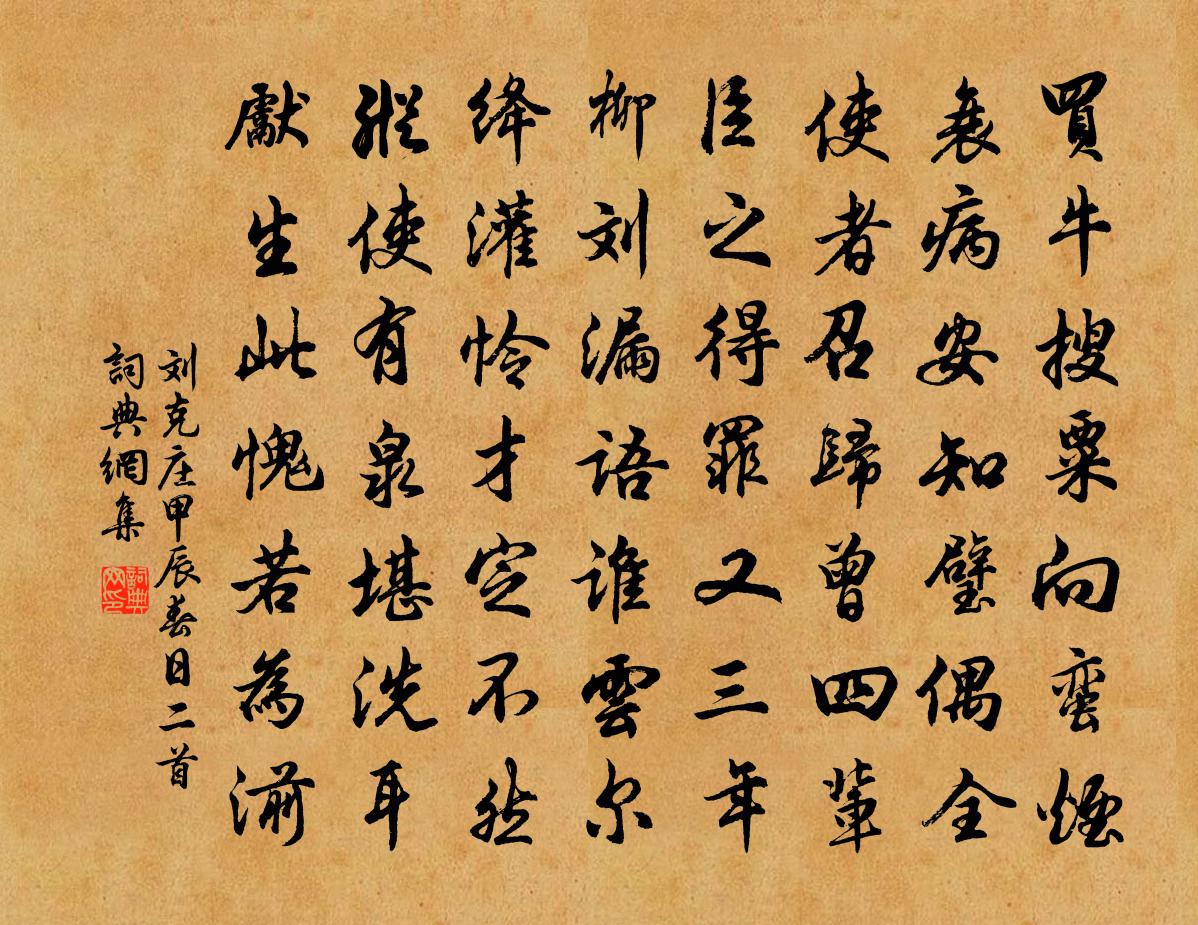 買牛搜粟向蛮煙
衰病安知璧偶全
使者召歸曾四輩
臣之得罪又三年
柳刘漏語谁雲尔
绛灌怜才定不然
縱使有泉堪洗耳
獻生此愧若為湔
刘克庄甲辰春日二首
詞典網集
詞典网印